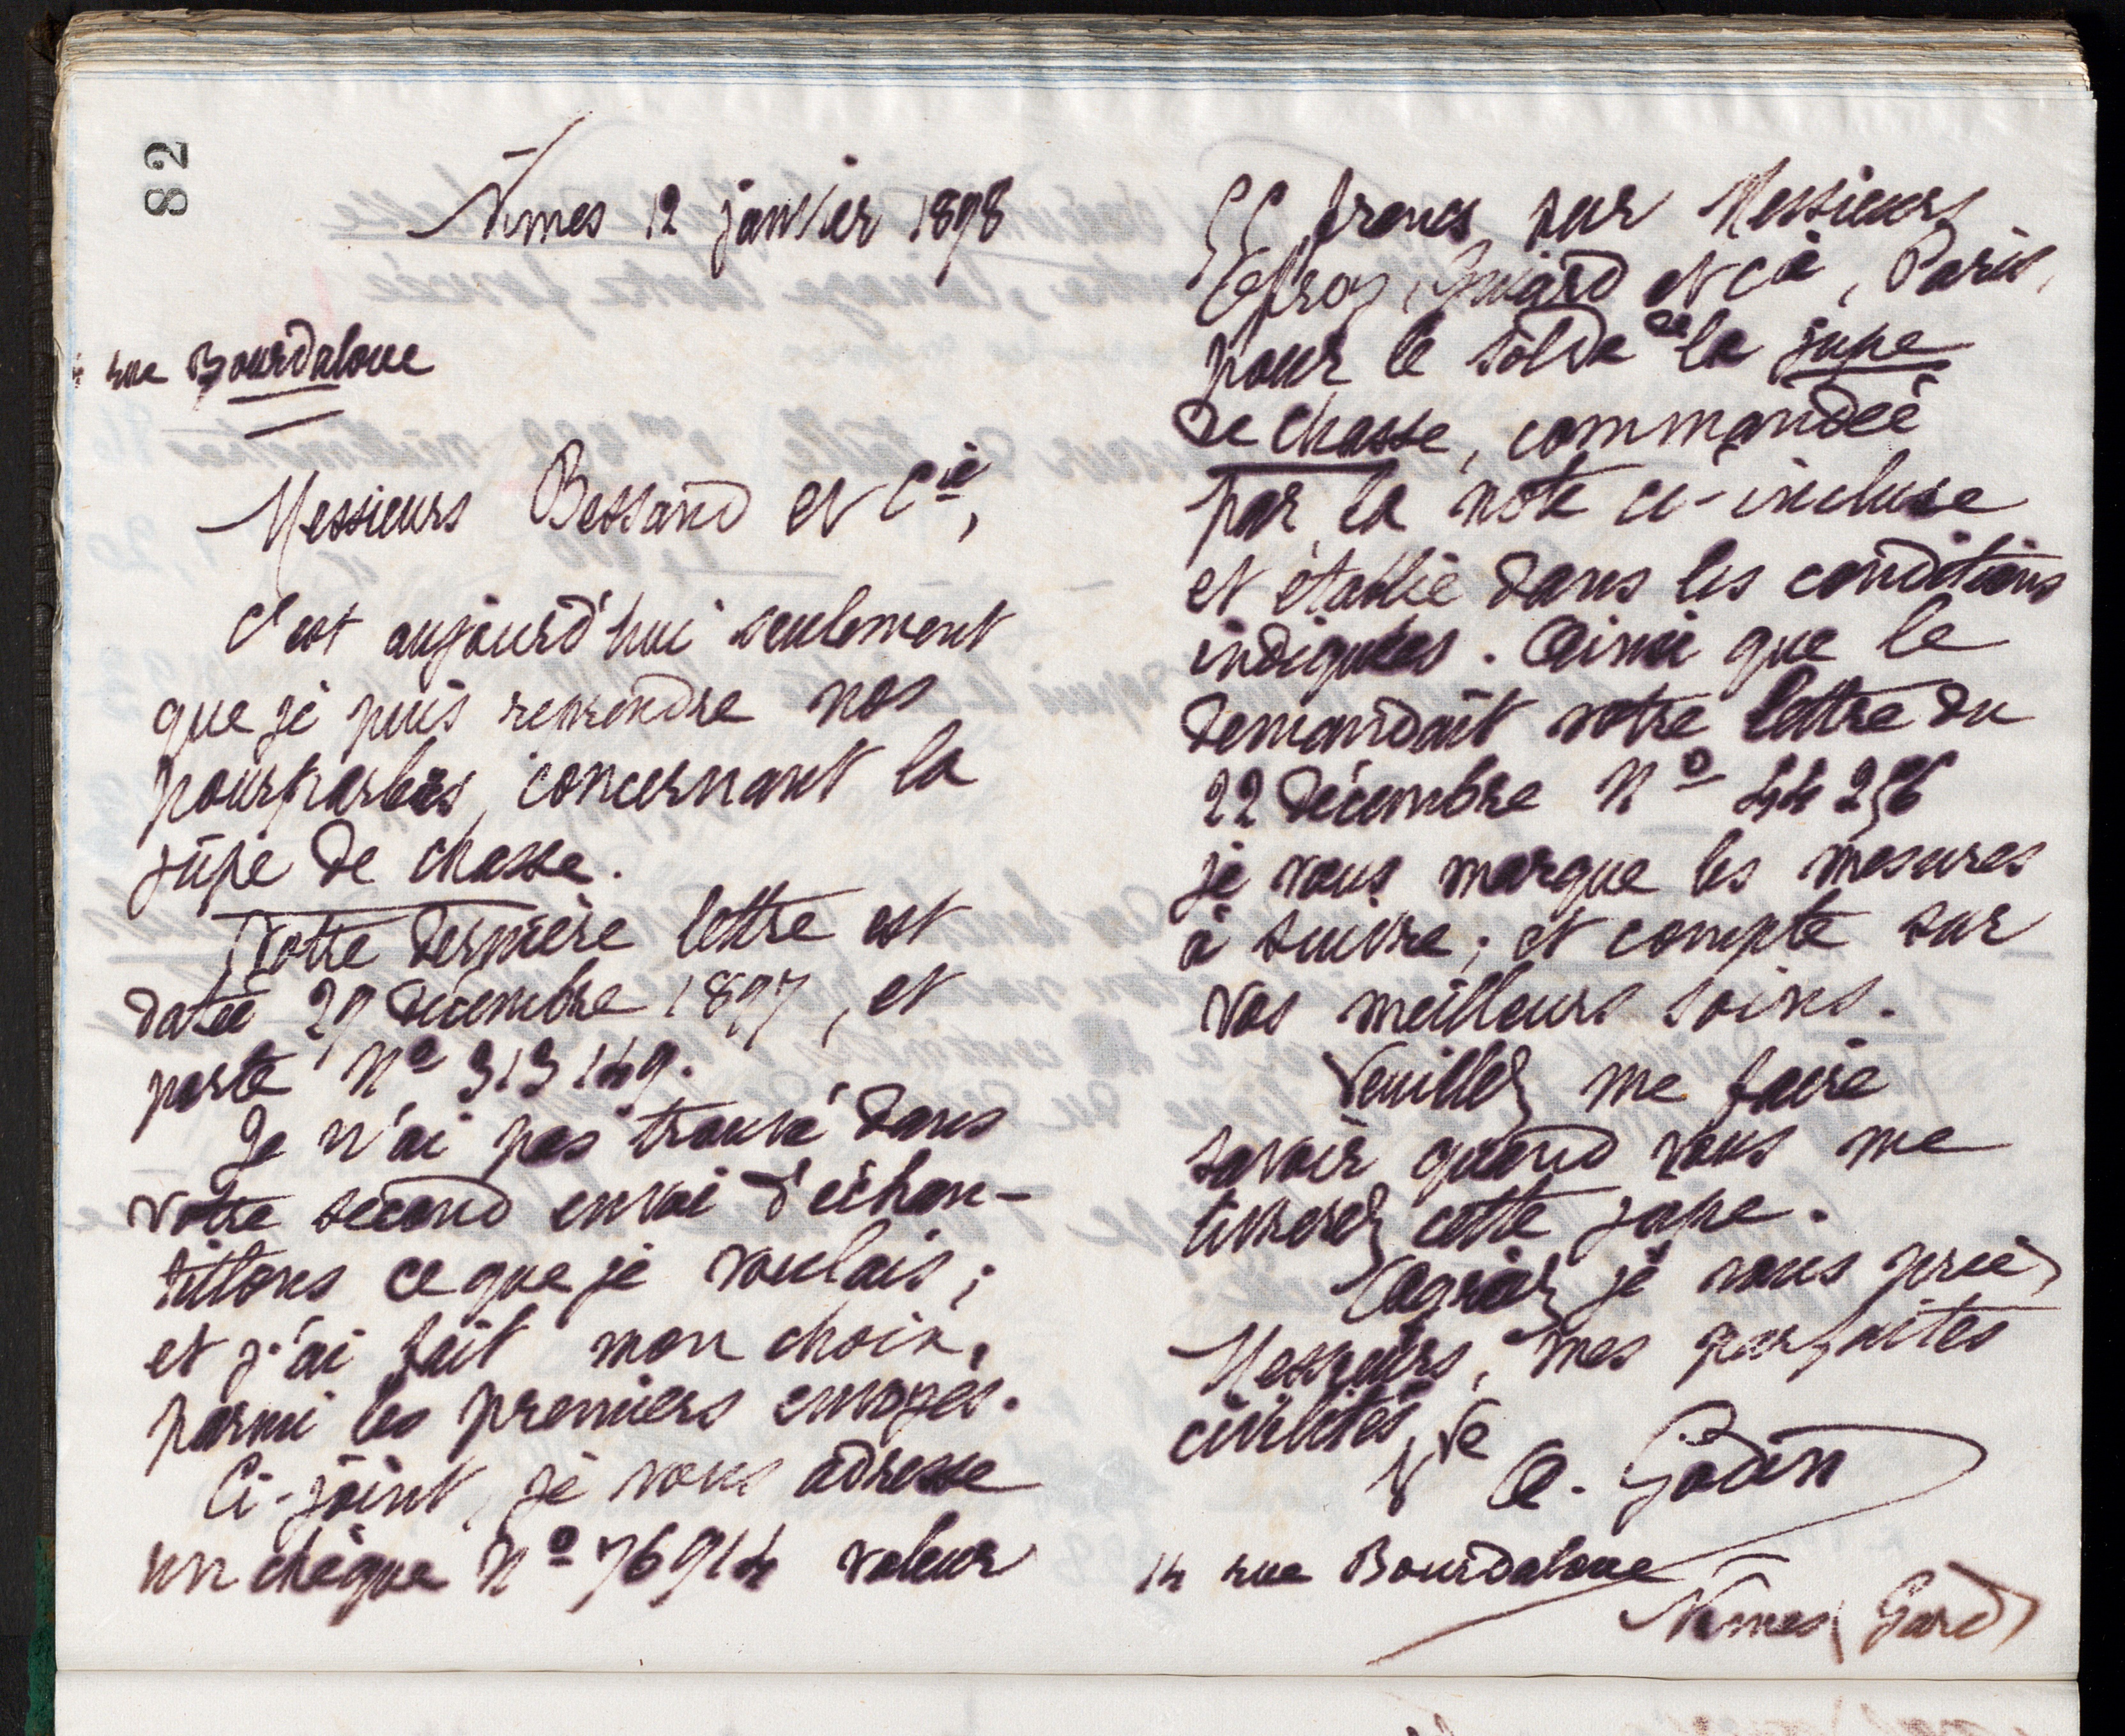 82
Nîmes 12 janvier 1898
rue Bourdaloue
Messieurs Bessand et Cie,
C'est aujourd'hui seulement
que je puis reprendre nos
pourparlers, concernant la
jupe de chasse.
Votre dernière lettre est
datée 29 décembre 1897, et
porte No 313149.
Je n'ai pas trouvé dans
votre second envoi d'échan-
tillons ce que je voulais;
et j'ai fait mon choix,
parmi les premiers envoyés.
Ci-joint, je vous adresse
un chèque No 76914 valeur
55 francs sur Messieurs
Offroy, Guiard et Cie, Paris,
pour le solde de la jupe
de chasse, commandée
par la note ci-incluse
et établie dans les conditions
indiquées. Ainsi que le
demandait votre lettre du
22 décembre No 44256
je vous marque les mesures
à suivre; et compte sur
vos meilleurs soins.
Veuillez me faire
savoir quand vous me
livrerez cette jupe.
Agréez je vous prie,
Messieurs, mes parfaites
civilités,
Vve A. Godin
14 rue Bourdaloue
Nîmes (Gard)